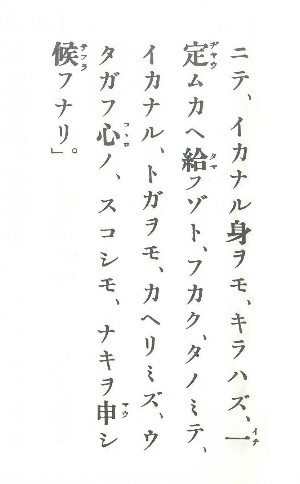 ニテ、イカナル身ヲモ、キラハズ、一
定ムカヘ給フゾト、フカク、タノミテ、
イカナル、トガヲモ、カヘリミズ、ウ
タガフ心ノ、スコシモ、ナキヲ申シ
候フナリ」。